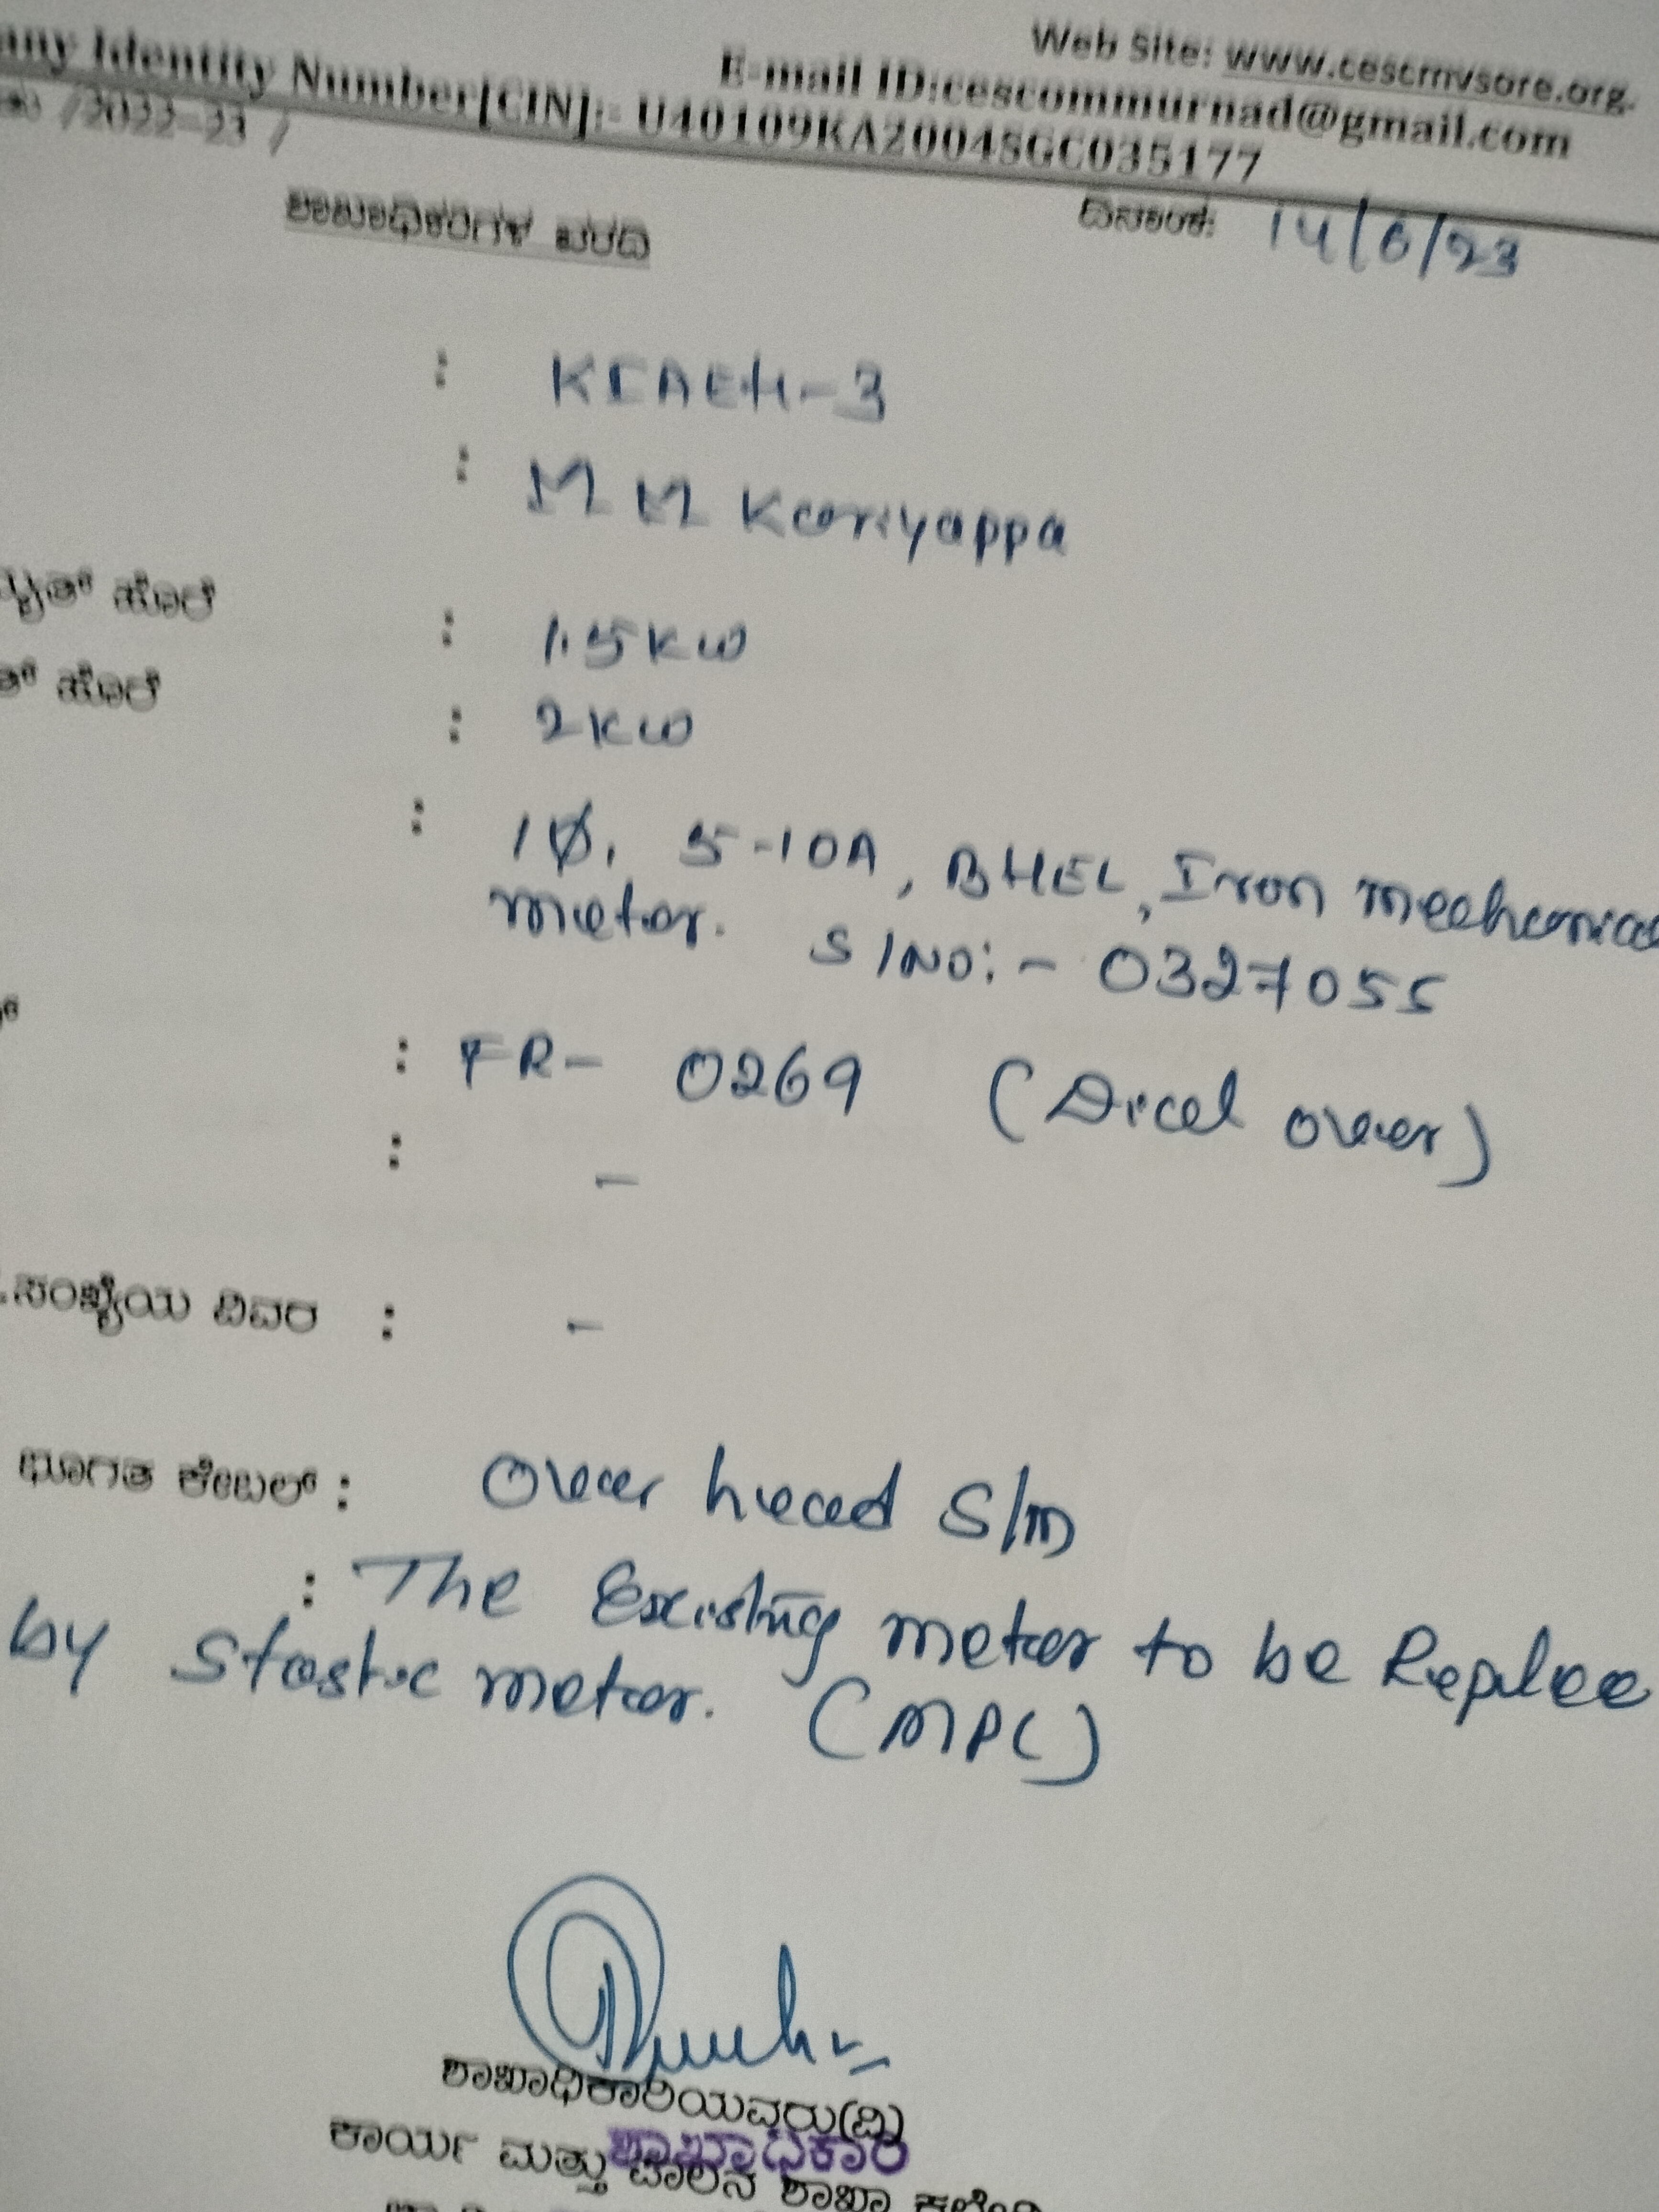 Web Site: www.cescmysore.org.
E-mail ID:cescommurnad@gmail.com
any Identity Number[CIN]:- U40109KA2004SGC035177
/2022-23 /
ಶಾಖಾಧಿಕಾರಿಗಳ ವರದಿ
ದಿನಾಂಕ: 14/6/23
: KCAEH-3
: M M Kariyappa
ಹೊರೆ : 1.5KW
ಹೊರೆ : 2KW
: 1Ø, 5-10A, BHEL, Iron mechanical
meter. S/NO:- 0327055
: FR- 0269 (Diеal over)
: -
.ಸಂಖ್ಯೆಯ ವಿವರ : -
ಭೂಗತ ಕೇಬಲ್ : Over head S/m
: The Existing meter to be Replace
by Stastic meter. (MPC)
ಶಾಖಾಧಿಕಾರಿಯವರು(ವಿ)
ಶಾಖಾಧಿಕಾರಿ
ಕಾರ್ಯ ಮತ್ತು ಪಾಲನ ಶಾಖಾ ಕಛೇರಿ